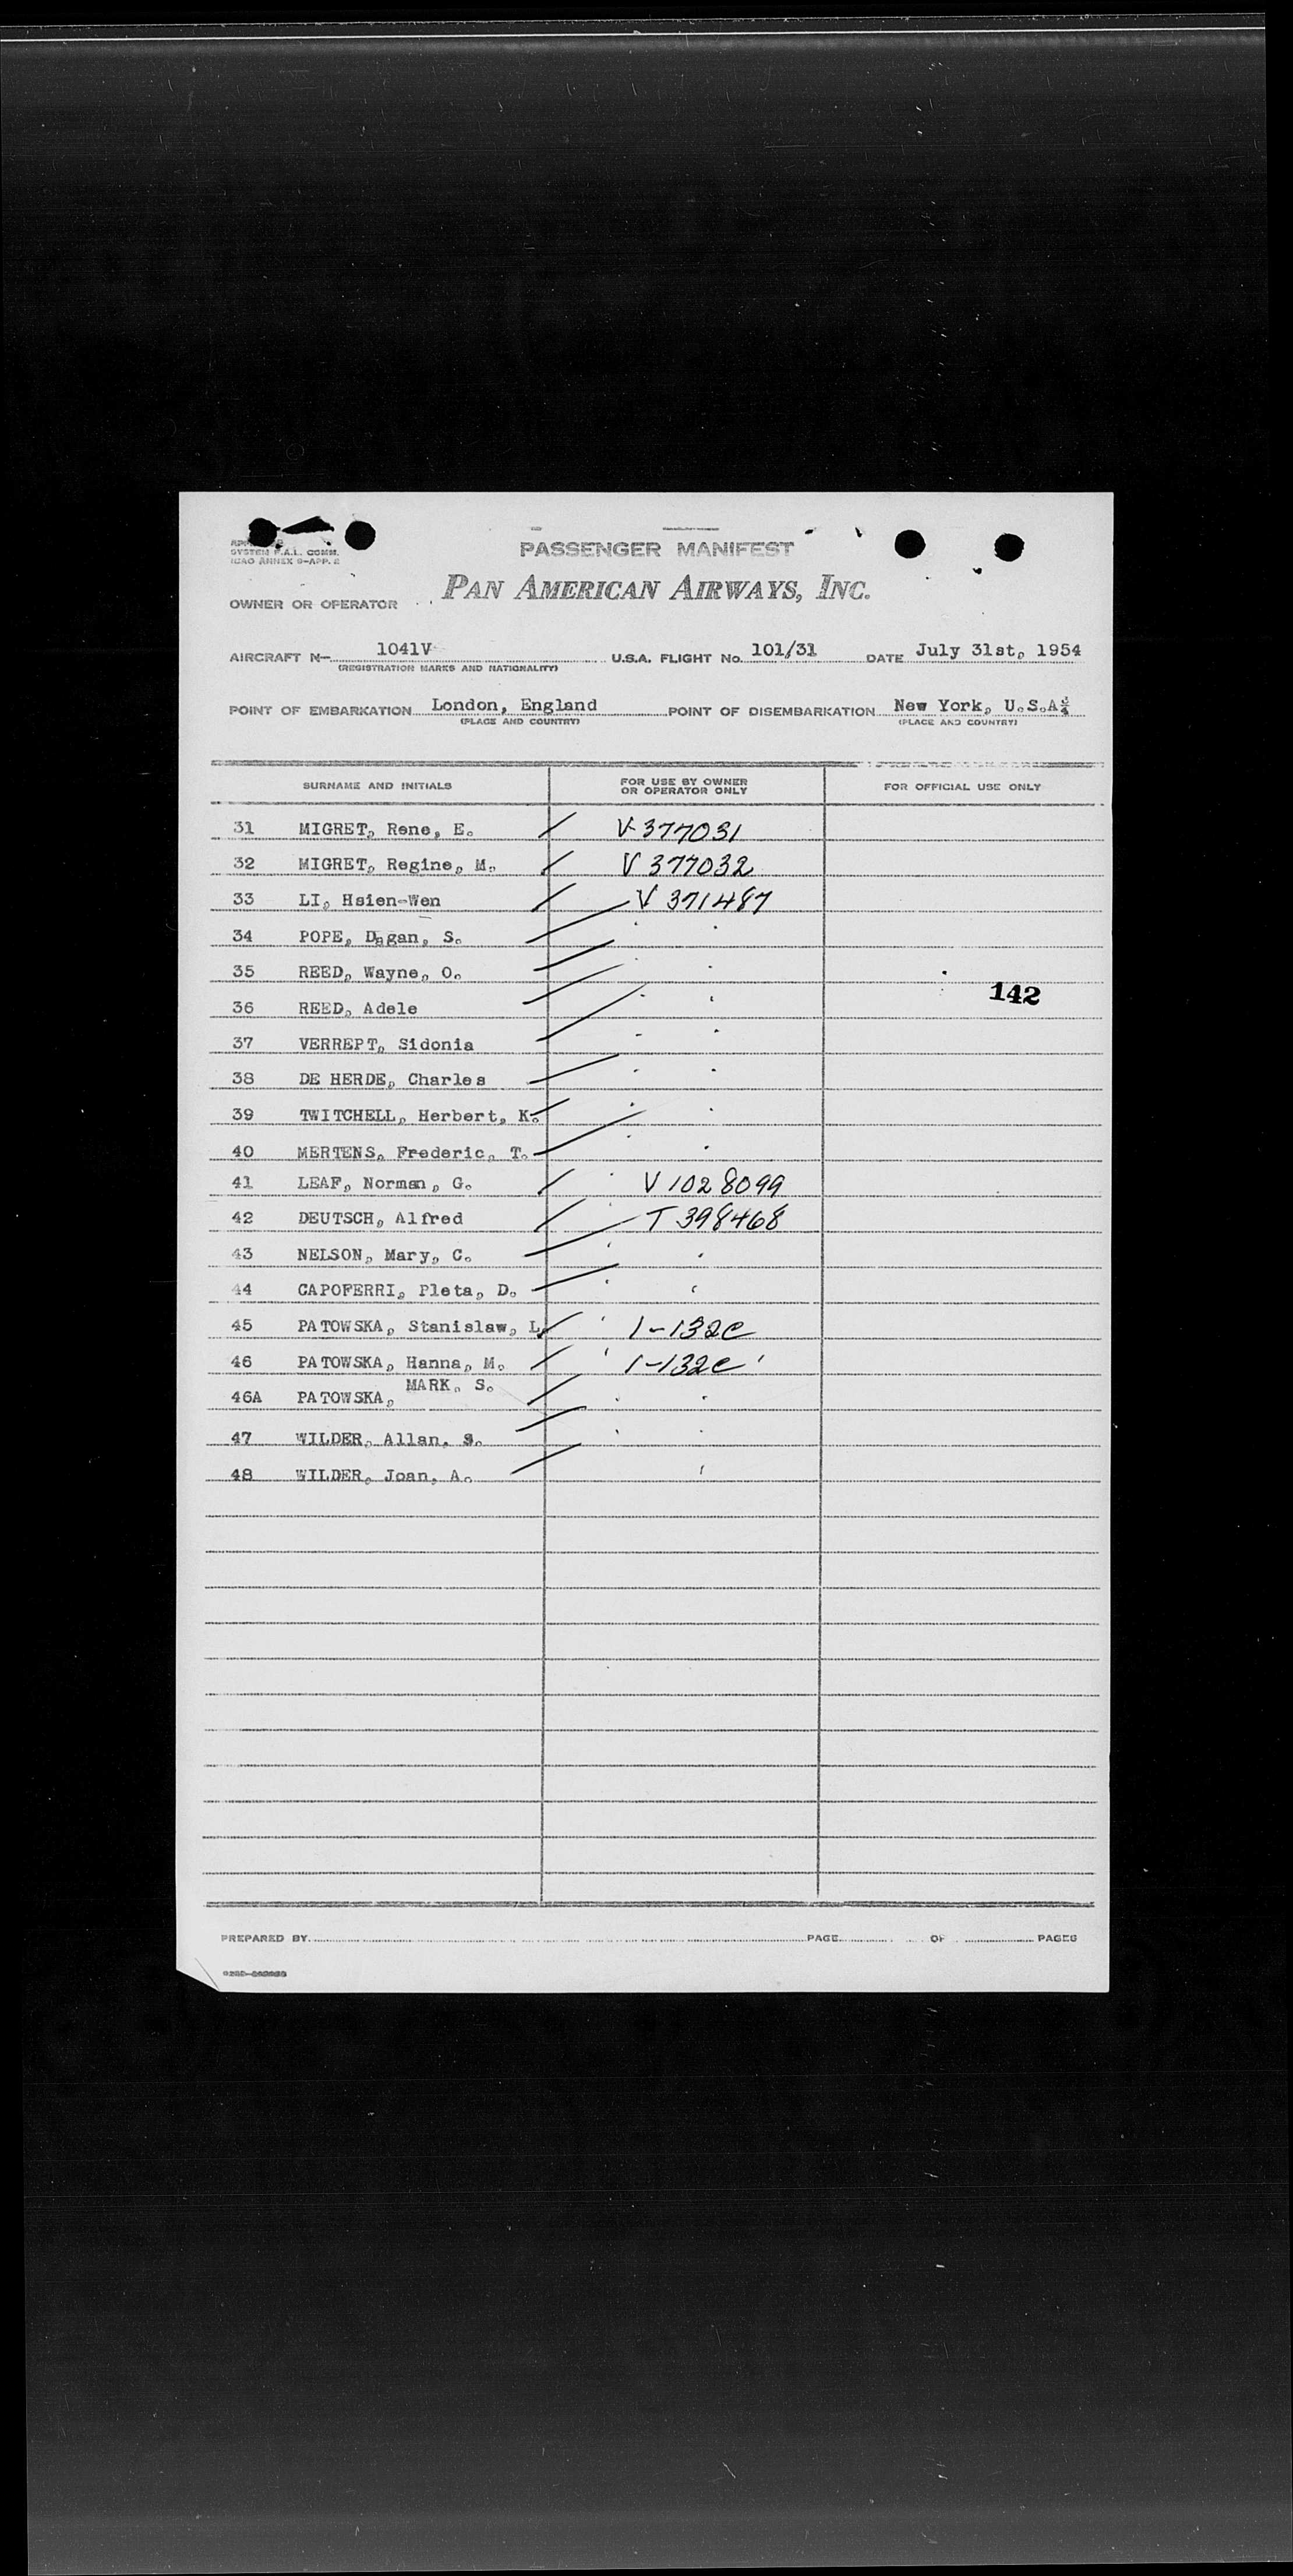 SYSTEM F.A.L. COMM.
ICAO ANNEX 9-APP. 2
PASSENGER MANIFEST
PAN AMERICAN AIRWAYS, INC.
OWNER OR OPERATOR
AIRCRAFT N- 1041V U.S.A. FLIGHT No. 101/31 DATE July 31st, 1954
(REGISTRATION MARKS AND NATIONALITY)
POINT OF EMBARKATION London, England POINT OF DISEMBARKATION New York, U.S.A
(PLACE AND COUNTRY) (PLACE AND COUNTRY)
SURNAME AND INITIALS FOR USE BY OWNER OR OPERATOR ONLY FOR OFFICIAL USE ONLY
31 MIGRET, Rene, E. V-377031
32 MIGRET, Regine, M. V 377032
33 LI, Hsien-Wen V 371487
34 POPE, Dagan, S.
35 REED, Wayne, O.
142
36 REED, Adele
37 VERREPT, Sidonia
38 DE HERDE, Charles
39 TWITCHELL, Herbert, K.
40 MERTENS, Frederic, T.
41 LEAF, Norman, G. V 1028099
42 DEUTSCH, Alfred T 398468
43 NELSON, Mary, C.
44 CAPOFERRI, Pleta, D.
45 PATOWSKA, Stanislaw, L. 1-132C
46 PATOWSKA, Hanna, M. 1-132C
46A PATOWSKA, MARK, S.
47 WILDER, Allan, S.
48 WILDER, Joan, A.
PREPARED BY PAGE OF PAGES